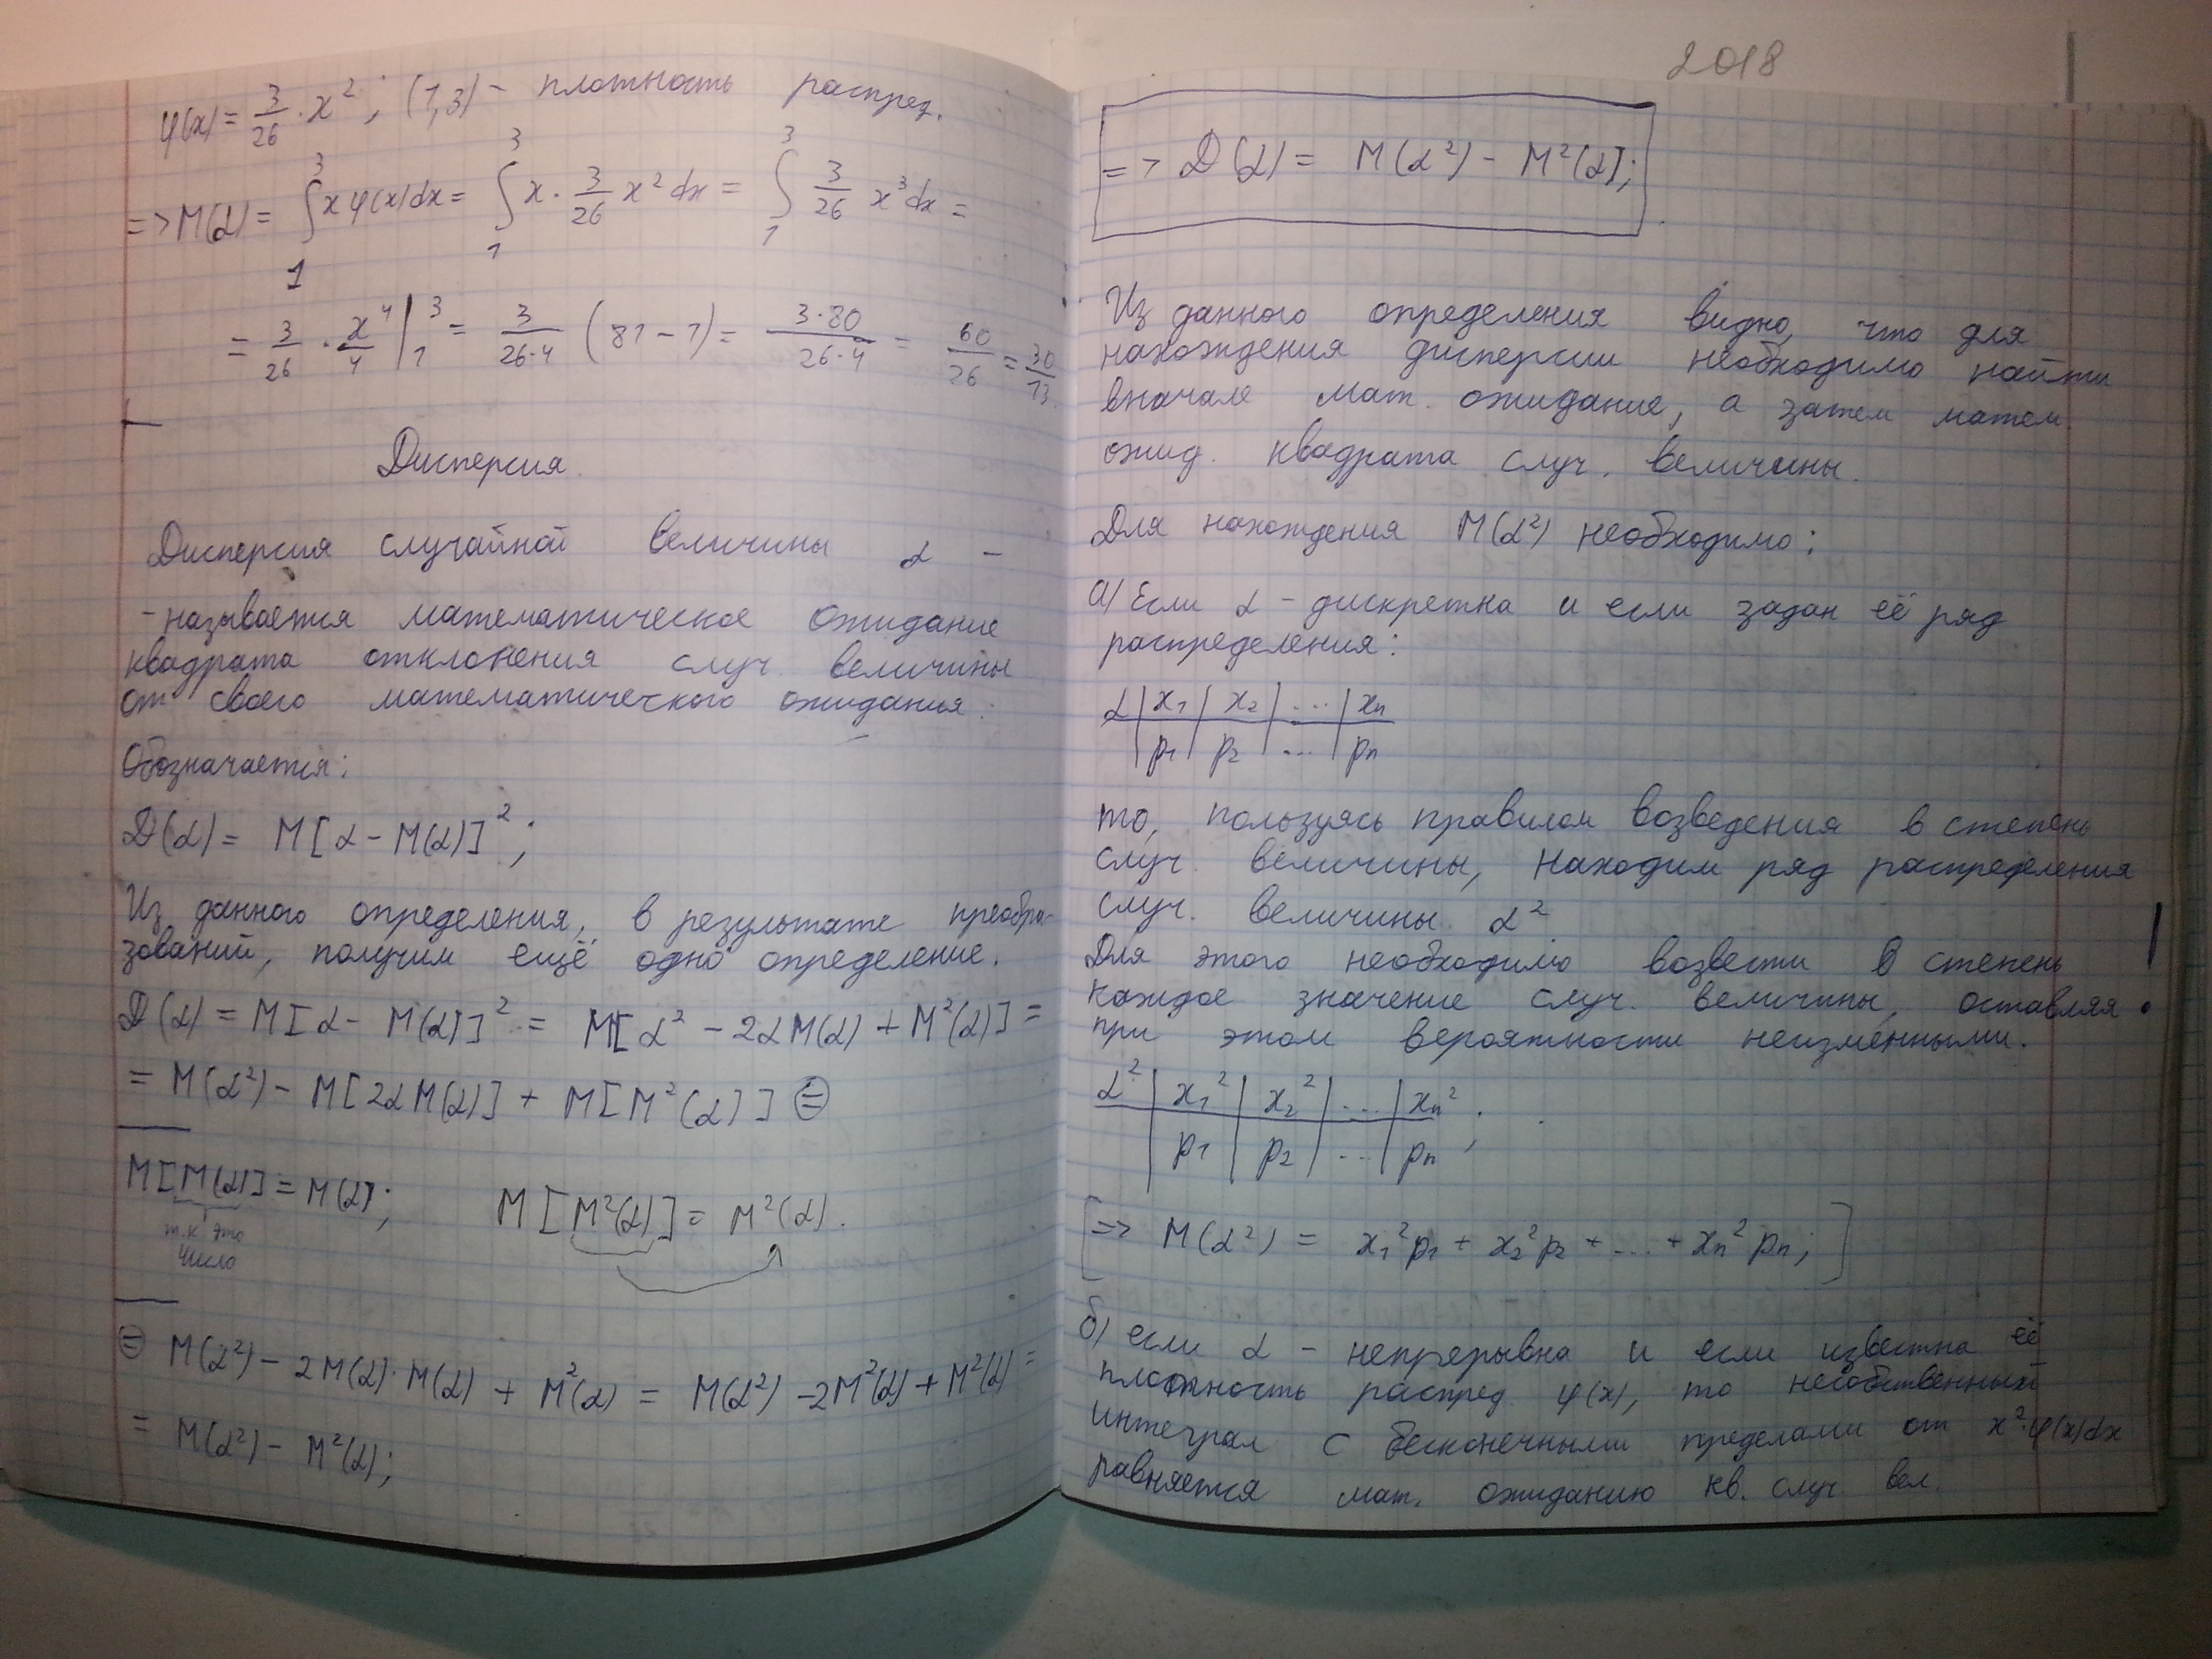 φ(x) = 3/26 · x²; (1,3) - плотность распред.
=> M(α) = ∫₁³ x φ(x) dx = ∫₁³ x · 3/26 x² dx = ∫₁³ 3/26 x³ dx =
= 3/26 · x⁴/4 |₁³ = 3/(26·4) (81 - 1) = 3·80/(26·4) = 60/26 = 30/13.
Дисперсия.
Дисперсия случайной величины α -
- называется математическое ожидание
квадрата отклонения случ. величины
от своего математического ожидания.
Обозначается:
D(α) = M[α - M(α)]²;
Из данного определения, в результате преобра-
зований, получим ещё одно определение.
D(α) = M[α - M(α)]² = M[α² - 2αM(α) + M²(α)] =
= M(α²) - M[2αM(α)] + M[M²(α)] ⊜
M[M(α)] = M(α); M[M²(α)] = M²(α).
т.к это
число
⊜ M(α²) - 2M(α)·M(α) + M²(α) = M(α²) - 2M²(α) + M²(α) =
= M(α²) - M²(α);
2018
=> D(α) = M(α²) - M²(α);
Из данного определения видно, что для
нахождения дисперсии необходимо найти
вначале мат. ожидание, а затем матем.
ожид. квадрата случ. величины.
Для нахождения M(α²) необходимо:
а) Если α - дискретна и если задан её ряд
распределения:
α | x₁ | x₂ | ... | xₙ
| p₁ | p₂ | ... | pₙ
то, пользуясь правилом возведения в степень
случ. величины, находим ряд распределения
случ. величины α²
Для этого необходимо возвести в степень
каждое значение случ. величины, оставляя
при этом вероятности неизменными. !
α² | x₁² | x₂² | ... | xₙ²
| p₁ | p₂ | ... | pₙ ;
[=> M(α²) = x₁²p₁ + x₂²p₂ + ... + xₙ²pₙ;]
б) если α - непрерывна и если известна её
плотность распред. φ(x), то несобственный
интеграл с бесконечными пределами от x²·φ(x)dx
равняется мат. ожиданию кв. случ вел.